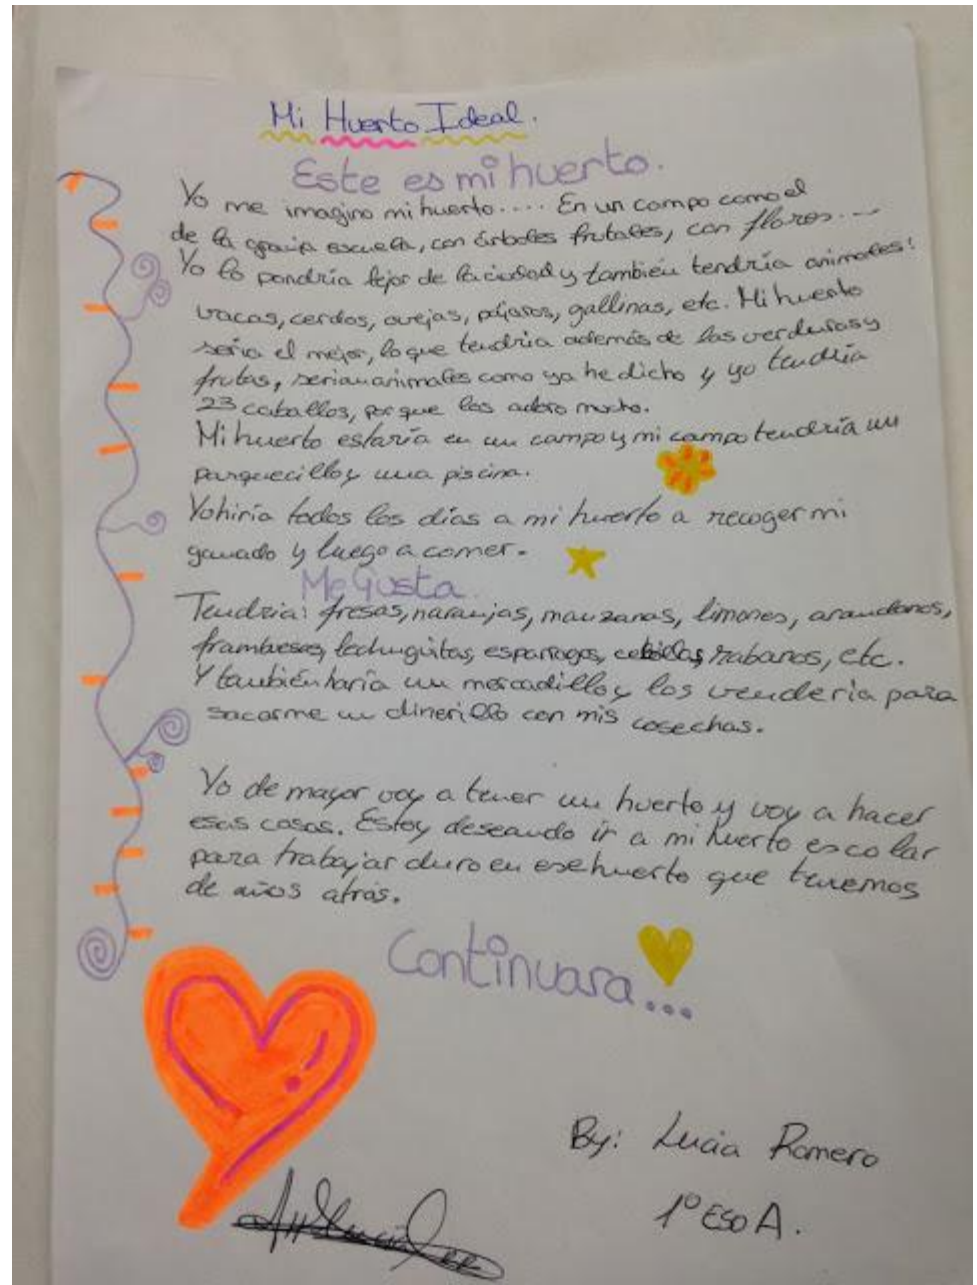 Mi Huerto Ideal.
Este es mi huerto.
Yo me imagino mi huerto.... En un campo como el
de la granja escuela, con árboles frutales, con flores...
Yo lo pondría lejos de la ciudad y también tendría animales:
vacas, cerdos, ovejas, pájaros, gallinas, etc. Mi huerto
sería el mejor, lo que tendría además de las verduras y
frutas, serian animales como ya he dicho y yo tendría
23 caballos, porque los adoro mucho.
Mi huerto estaría en un campo y mi campo tendría un
parquecillo y una piscina.
Yo hiría todos los días a mi huerto a recoger mi
ganado y luego a comer.
Me Gusta
Tendria: fresas, naranjas, manzanas, limones, arandanos,
frambesas, lechuguitas, esparragos, cebollas, rabanos, etc.
Y también haría un mercadillo y los vendería para
sacarme un dinerillo con mis cosechas.
Yo de mayor voy a tener un huerto y voy a hacer
esas cosas. Estoy deseando ir a mi huerto escolar
para trabajar duro en ese huerto que tenemos
de años atrás.
Continuara...
By: Lucia Romero
1º ESO A.